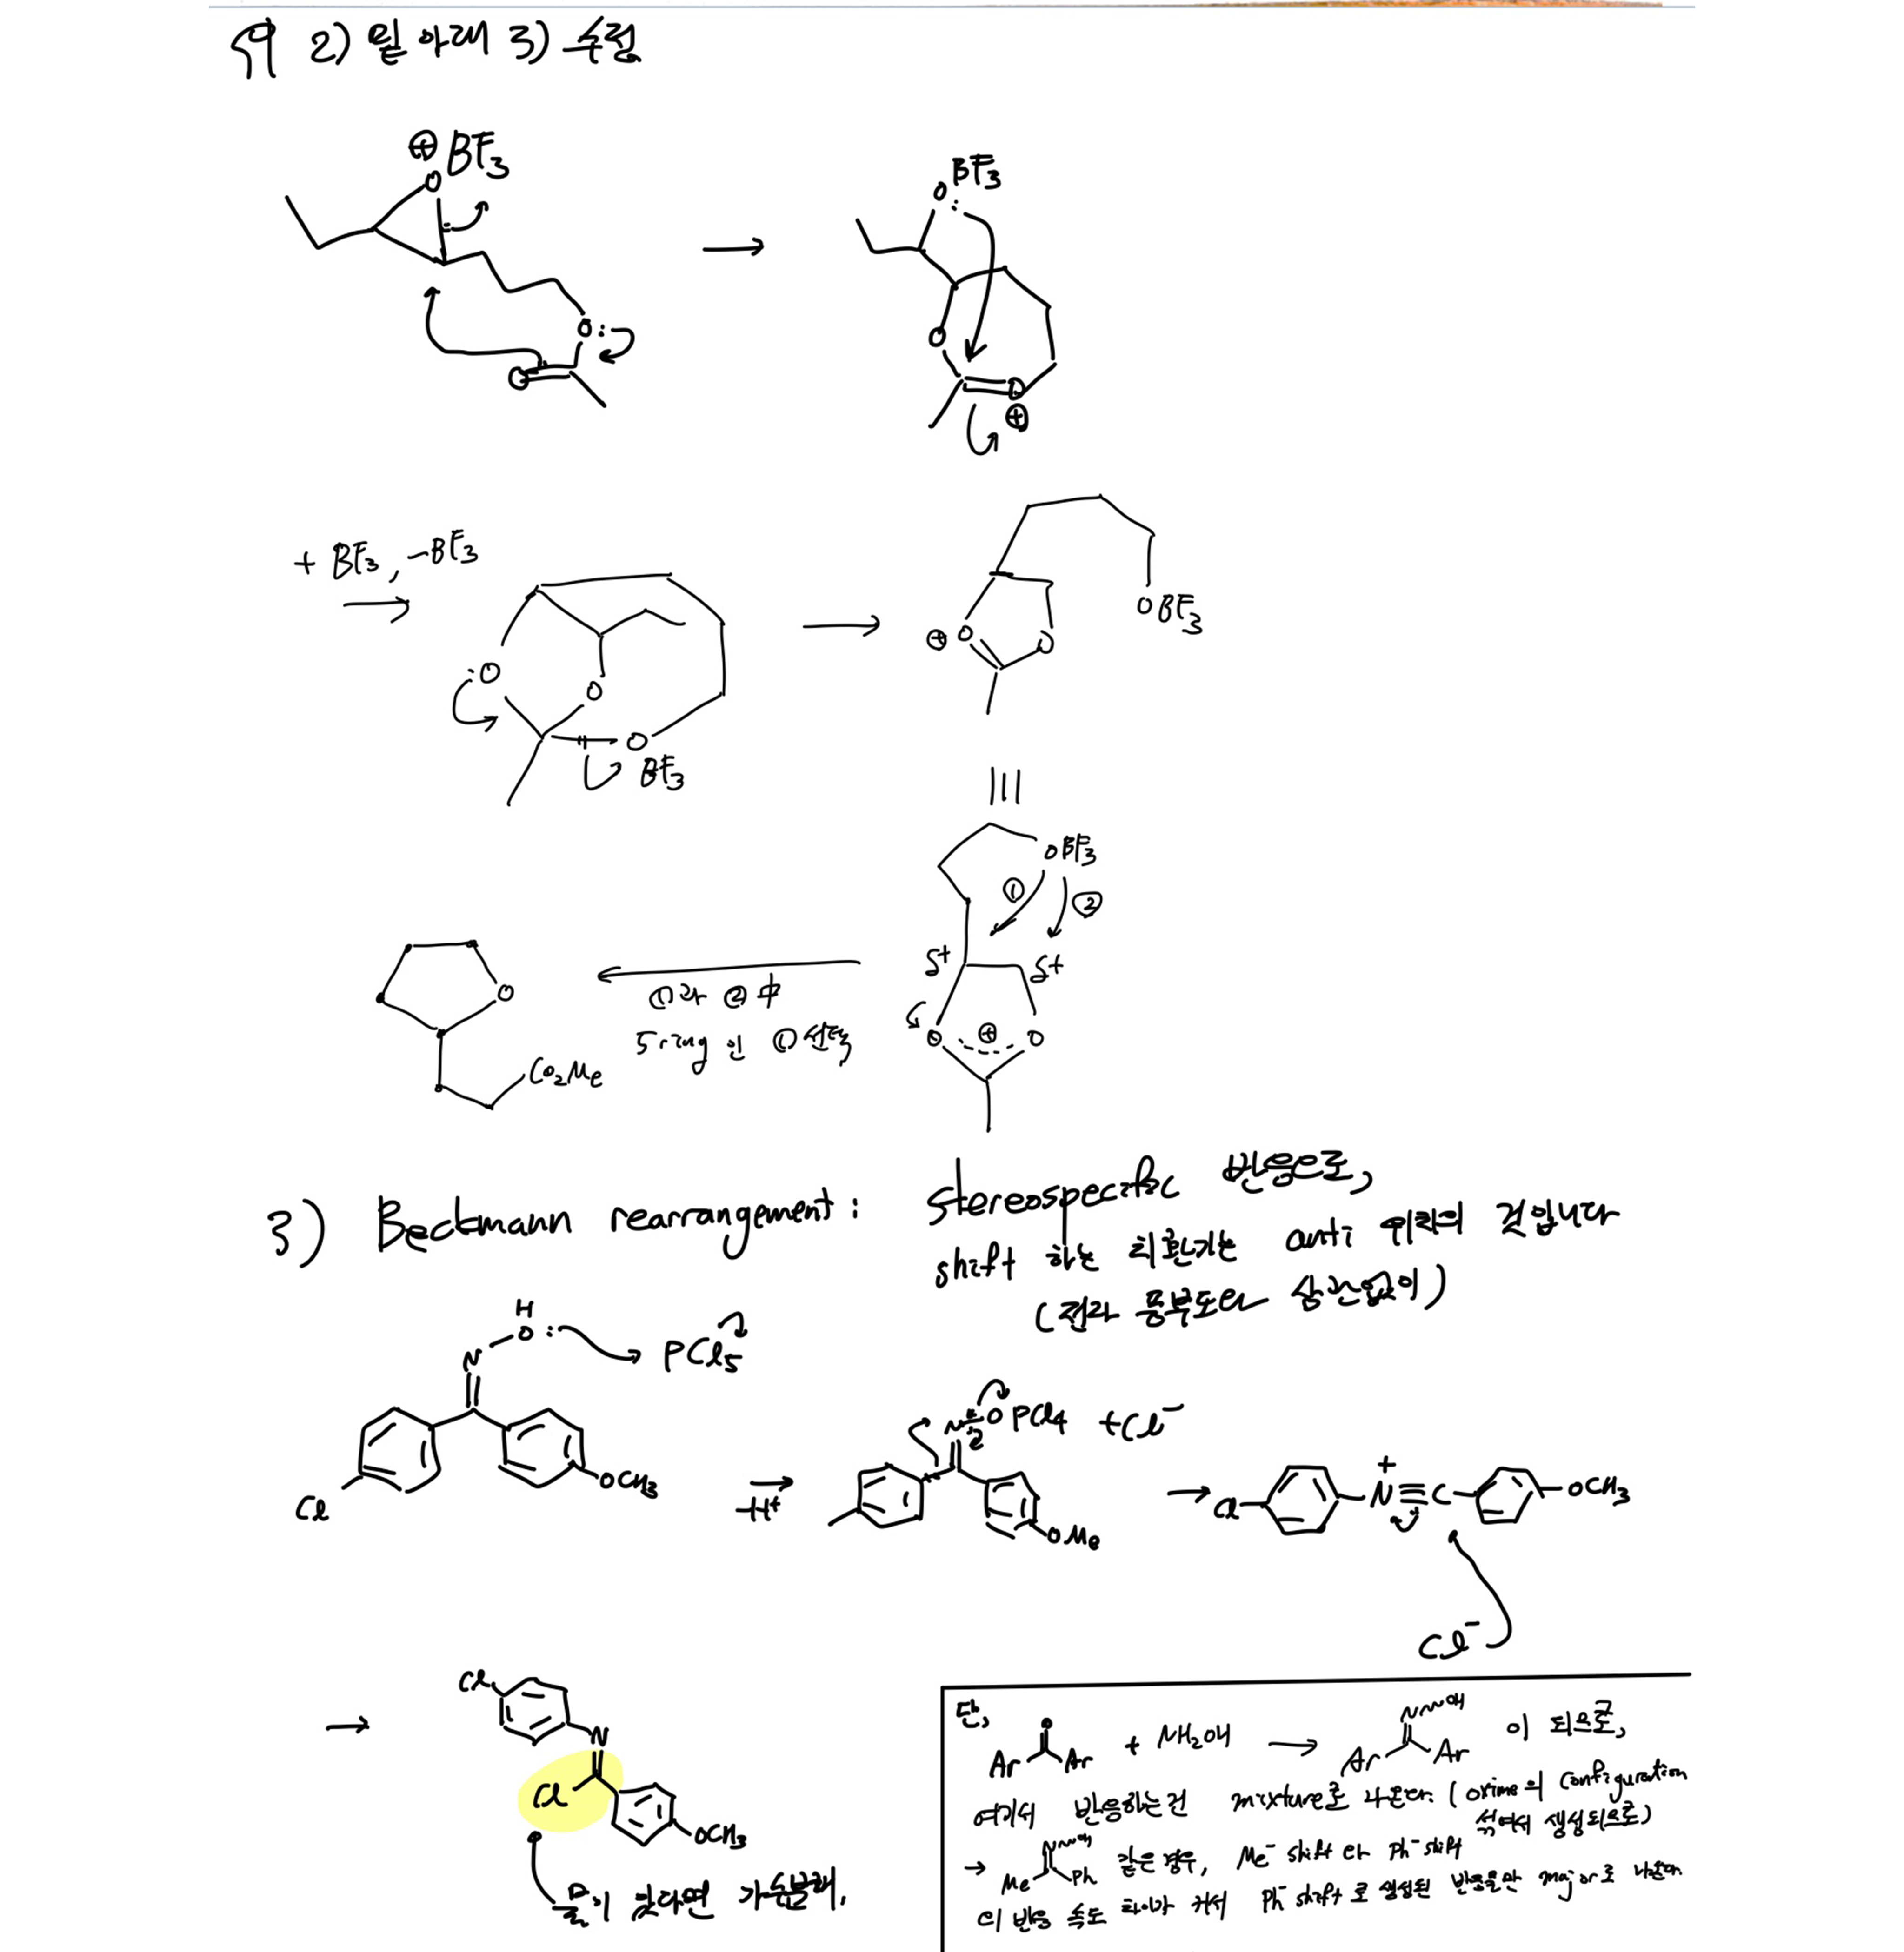 2) 밑 아래 3) 수정
⊕ BF3
O
O:
O
BF3
O:
O
O
⊕
+ BF3, -BF3
:O
O
O
BF3
OBF3
⊕ O
O
OBF3
①
②
δ+
δ+
O
⊕
O
①과 ② 中
5 ring 인 ① 선택
O
CO2Me
3) Beckmann rearrangement : stereospecific 반응으로,
shift 하는 치환기는 anti 위치의 것입니다
(전자 풍부도와 상관없이)
H
O:
N
PCl5
Cl
OCH3
-H+
N
OPCl4 + Cl-
OMe
Cl
+
N≡C
OCH3
Cl-
Cl
N
Cl
OCH3
물이 있다면 가수분해.
단,
O
Ar Ar
+ NH2OH
N OH
Ar Ar
이 되므로,
여기서 반응하는건 mixture로 나온다. (oxime의 configuration
섞여서 생성되므로)
→
N OH
Me Ph
같은 경우, Me- shift 와 Ph- shift
의 반응 속도 차이가 커서 Ph- shift 로 생성된 반응물만 major로 나온다.